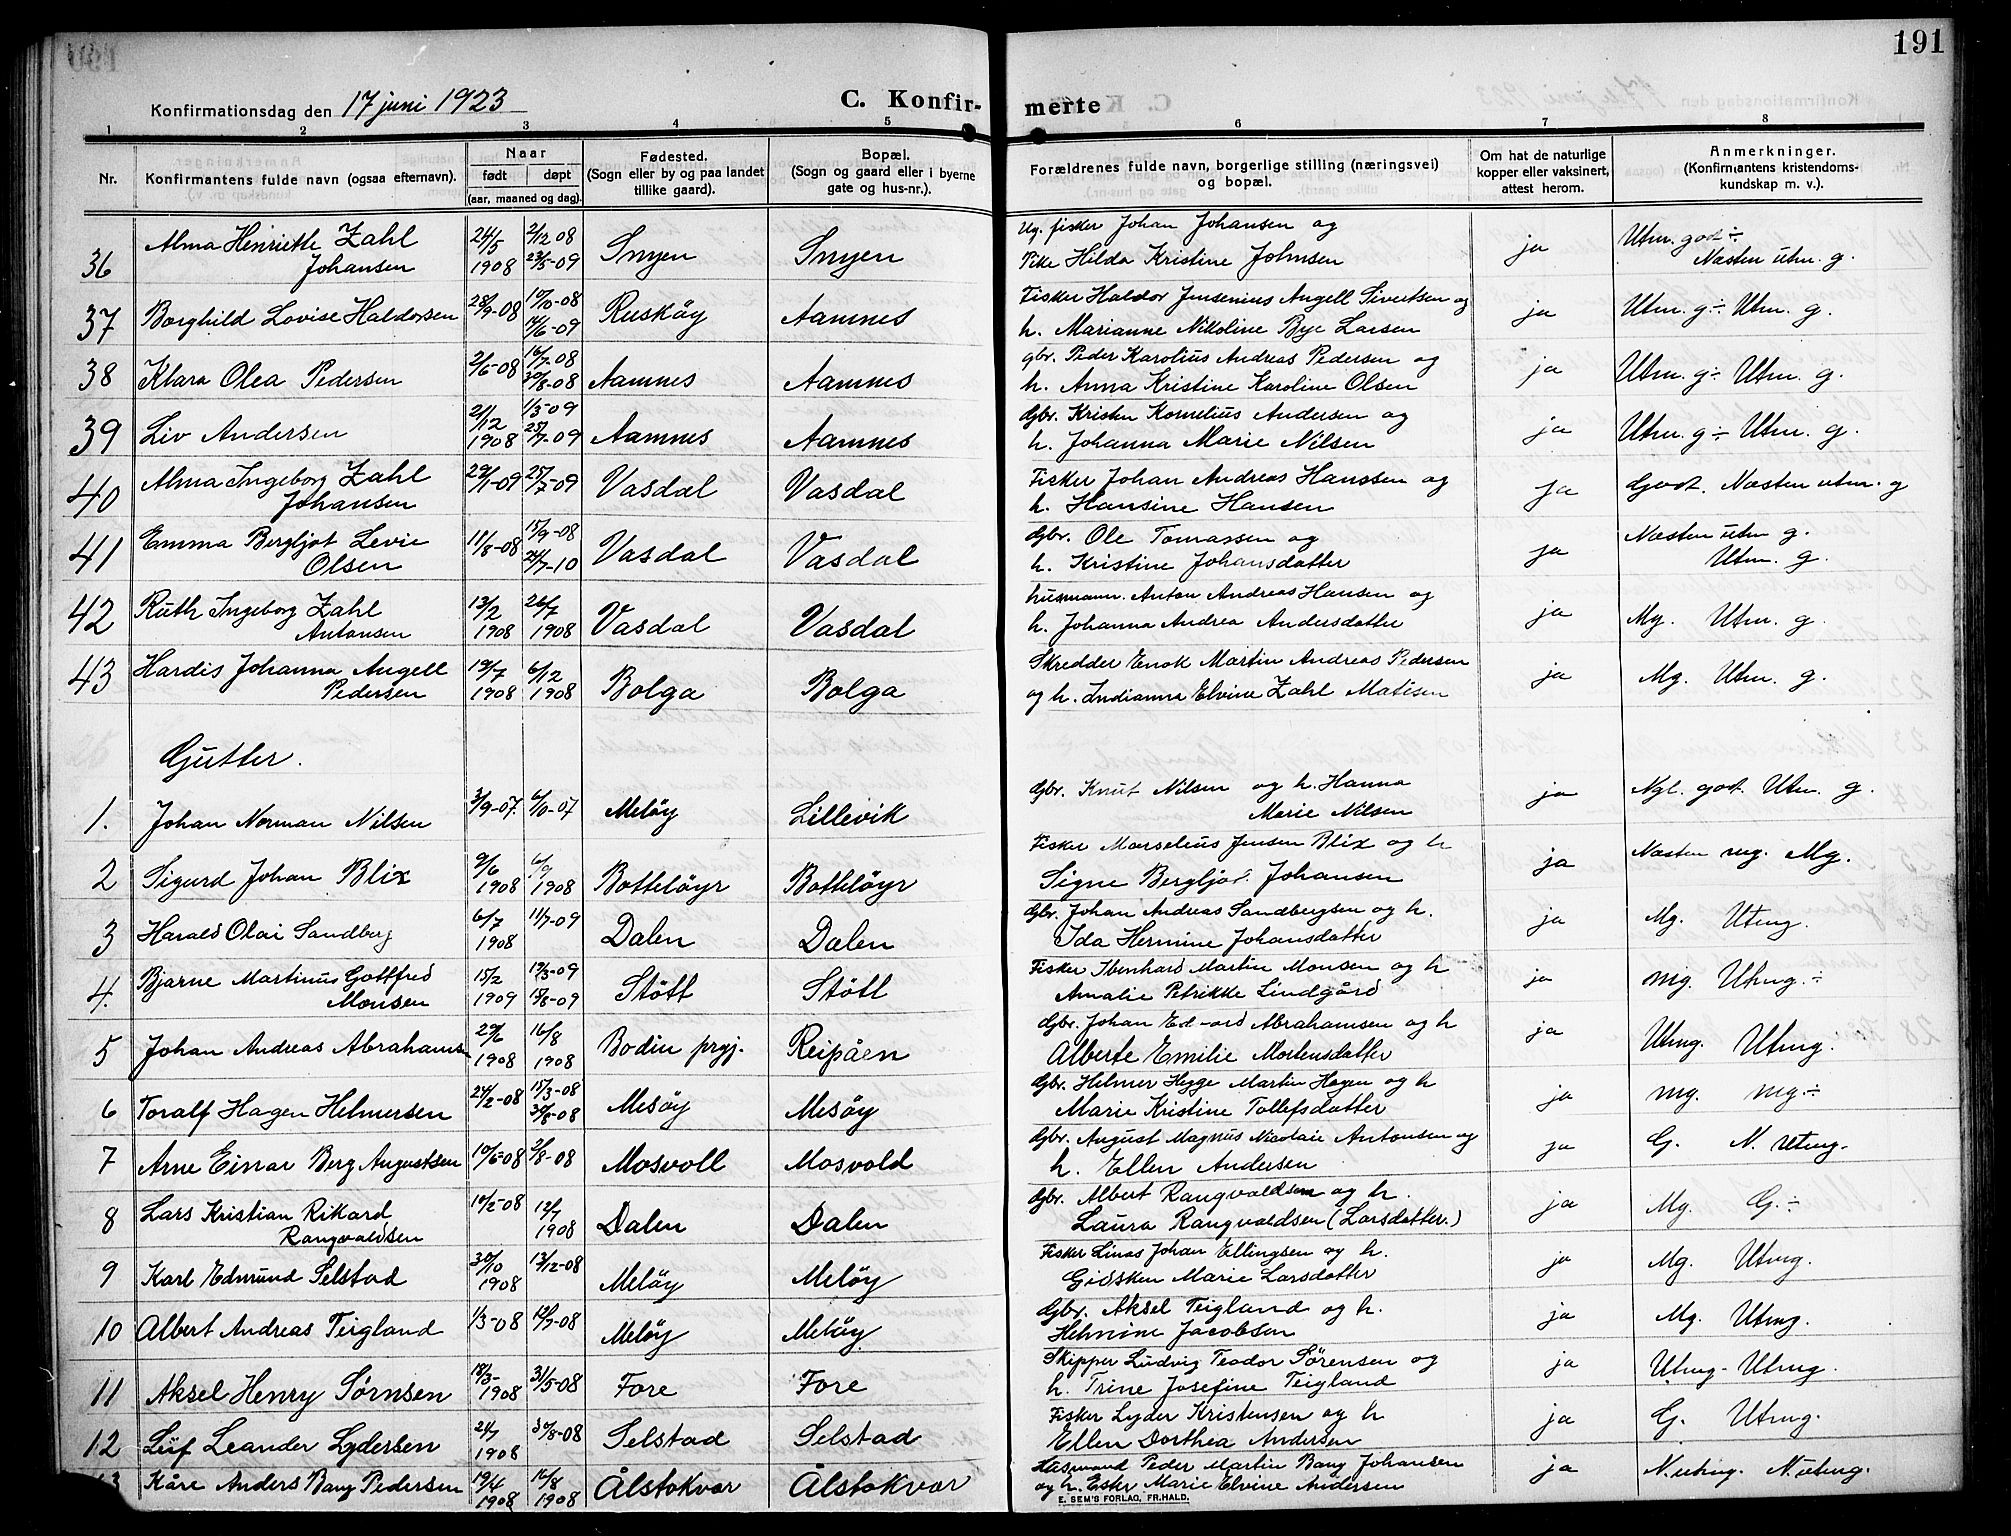 191
Konfirmationsdag den 17 juni 1923
C. Konfir- merte
1 2 3 4 5 6 7 8
Nr.
Konfirmantens fulde navn (ogsaa efternavn).
Naar
født døpt
(aar, maaned og dag).
Fødested.
(Sogn eller by og paa landet
tillike gaard).
Bopæl.
(Sogn og gaard eller i byerne
gate og hus-nr.).
Forældrenes fulde navn, borgerlige stilling (næringsvei)
og bopæl.
Om hat de naturlige
kopper eller vaksinert,
attest herom.
Anmerkninger.
(Konfirmantens kristendoms-
kundskap m. v.).
Alma Henriette Zahl 24/5 2/12 08 Ug. fisker Johan Johansen og Utm. god ÷
36 Johansen 1908 23/5-09 Snyen Snyen Pike Hilda Kristine Johnsen ja Næsten utm. g.
28/9-08 10/10-08 Fisker Haldor Jensenius Angell Sivertsen og
37 Borghild Lovise Haldorsen 14/6-09 Rusköy Aamnes h. Marianne Nikoline Bye Larsen ja Utm. g ÷ Utm. g.
2/6-08 16/7-08 gbr. Peder Karolius Andreas Pedersen og
38 Klara Olea Pedersen 30/8-08 Aamnes Aamnes h. Anna Kristine Karoline Olsen ja Utm. g ÷ Utm. g.
2/12 1/3-09 Gbr. Kristen Kornelius Andersen og
39 Liv Andersen 1908 25/7-09 Aamnes Aamnes h. Johanna Marie Nilsen ja Utm. g ÷ Utm. g.
Alma Ingeborg Zahl 29/1-09 25/7-09 Fisker Johan Andreas Hanssen og
40 Johansen Vasdal Vasdal h. Hansine Hansen ja Godt. Næsten utm. g
Emma Bergljot Levie 19/8-08 15/9-08 Gbr. Ole Tomassen og Næsten utm g.
41 Olsen 24/7-10 Vasdal Vasdal h. Kristine Johansdatter ja Utm. g.
Ruth Ingeborg Zahl 13/2 26/7 husmann. Anton Andreas Hansen og
42 Antonsen 1908 1908 Vasdal Vasdal h. Johanna Andrea Andersdatter ja Mg. Utm. g.
Hardis Johanna Angell 19/7 6/12 Skredder Enok Martin Andreas Pedersen
43 Pedersen 1908 1908 Bolga Bolga og h. Indianna Elvine Zahl Matisen ja Mg. Utm. g.
Gutter.
3/9-07. 6/10-07 Gbr. Knut Nilsen og h. Hanna
1. Johan Norman Nilsen Melöy Lillevik Marie Nilsen ja Ngl. godt. Utm. g.
9/6 6/9 Fisker Marselius Jensen Blix og h
2 Sigurd Johan Blix 1908 1908 Bottelöyr Bottelöyr Signe Bergljot Johansen ja Næsten mg. Mg.
6/7 11/7-09 Gbr. Johan Andreas Sandbergsen og h.
3 Harald Olai Sandberg 1908 Dalen Dalen Ida Hermine Johansdatter ja Mg. Utmg.
Bjarne Martinus Gottfred 15/2 19/3-09 Fisker Ibenhard Martin Monsen og h
4. Monsen 1909 15/8-09 Stött Stött Amalie Petrikke Lindgård ja mg. Utmg. ÷
29/6 16/8 Gbr. Johan Ed-ard Abrahamsen og h
5 Johan Andreas Abrahams- 1908 1908 Bodin prgj. Reipåen Alberte Emilie Mortensdatter ja Utmg. Utmg.
24/2-08 15/3-08 Gbr. Helmer Hegge Martin Hagen og h
6 Toralf Hagen Helmersen 30/8-08 Mesöy Mesöy Marie Kristine Tollefsdatter ja mg. mg. ÷
10/6-08 2/8-08 Gbr. August Magnus Nicolaie Antonsen og
7 Arne Einar Berg Augustsen Mosvoll Mosvold h. Ellen Andersen ja G. N. utmg.
Lars Kristian Rikard 10/2-08 12/7 Gbr. Albert Rangvaldsen og h.
8 Rangvaldsen 1908 Dalen Dalen Laura Rangvaldsen (Larsdatter.) ja Mg. G. ÷
30/10 13/12-08 Fisker Linas Johan Ellingsen og h.
9 Karl Edmund Selstad 1908 Melöy Melöy Gidsken Marie Larsdatter ja Mg. Utmg.
1/3-08 12/7-08 Gbr. Aksel Teigland og h.
10 Albert Andreas Teigland Melöy Melöy Helmine Jacobsen ja Mg. Utmg.
18/3- 31/5-08 Skipper Ludvig Teodor Sørensen og
11 Aksel Henry Sørnsen 1908 Fore Fore h. Trine Josefine Teigland ja Utmg- Utmg.
24/7 30/8-08 Fisker Lyder Kristensen og h
12 Leif Leander Lydersen 1908 Selstad Selstad Ellen Dorthea Andersen ja G. Utmg.
19/4 16/8 Husmand Peder Martin Bang Johansen
13 Kåre Anders Bang Pedersen 1908 1908 Ålstokvar Ålstokvar og h. Ester Marie Elvine Andersen ja N. utmg. N. utmg.
E. SEM'S FORLAG, FR.HALD.